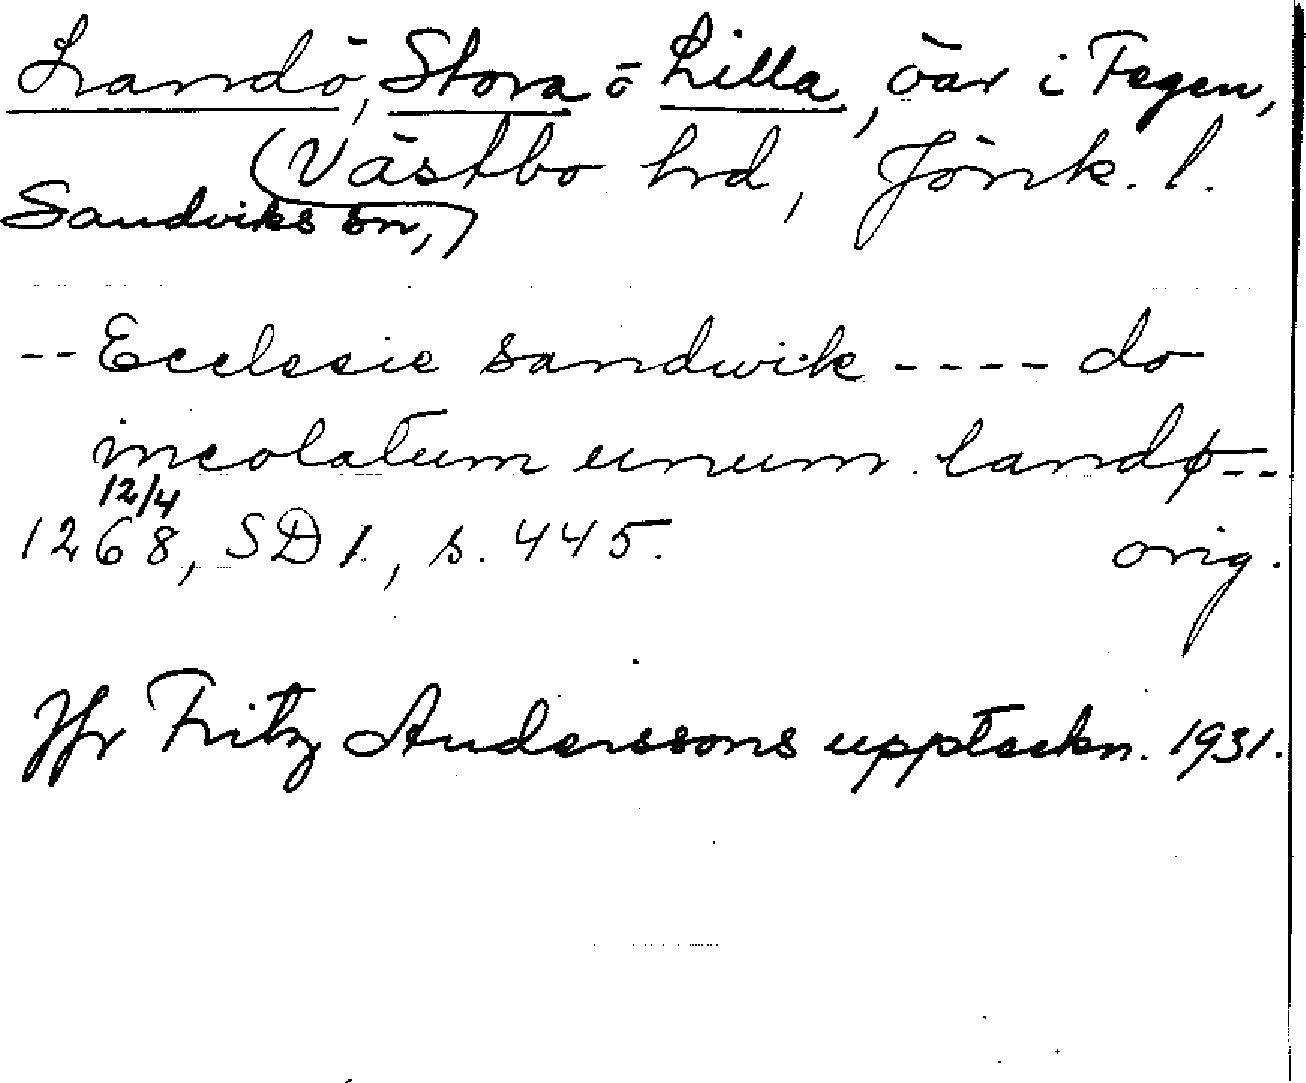 Landö, Stora o Lilla, öar i Fegen,
Sandviks sn, Västbo hrd, Jönk. l.
-- Ecclesie sandwik ---- do
incolatum unum landø--
12/4
1268, SD 1, s. 445. orig.
Jfr Fritz Anderssons uppteckn. 1931.